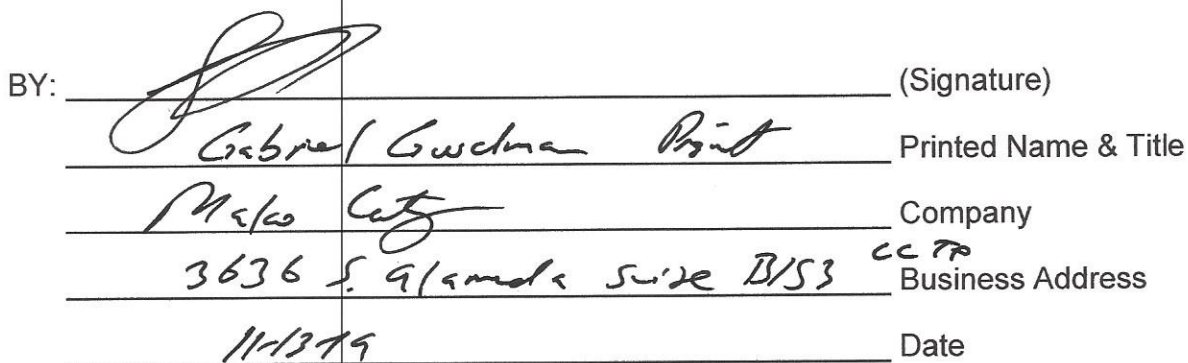 BY: (Signature)
Gabriel Guerra Printed Name & Title
Mako Company
3636 S. Alameda Suite B153 CC TX Business Address
11-13-19 Date